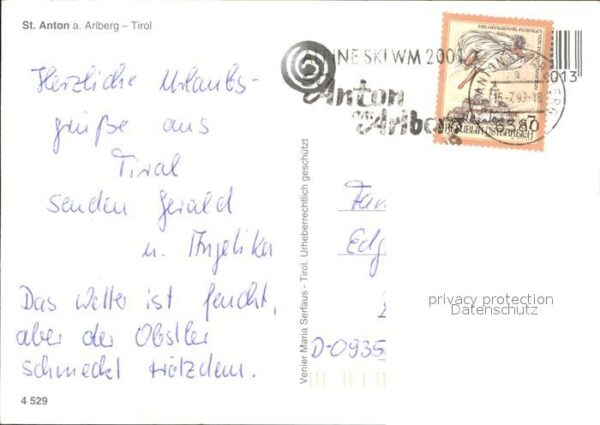 St. Anton a. Arlberg – Tirol
Herzliche Urlaubs-
grüße aus
Tirol
senden Gerald
u. Angelika
Das Wetter ist feucht,
aber der Obstler
schmeckt trotzdem.
4 529
Venier Maria Serfaus - Tirol. Urheberrechtlich geschützt
ALPINE SKI WM 2001
St. Anton
am Arlberg
6580
REPUBLIK ÖSTERREICH
7
Fam
Edg
D-0935
privacy protection
Datenschutz